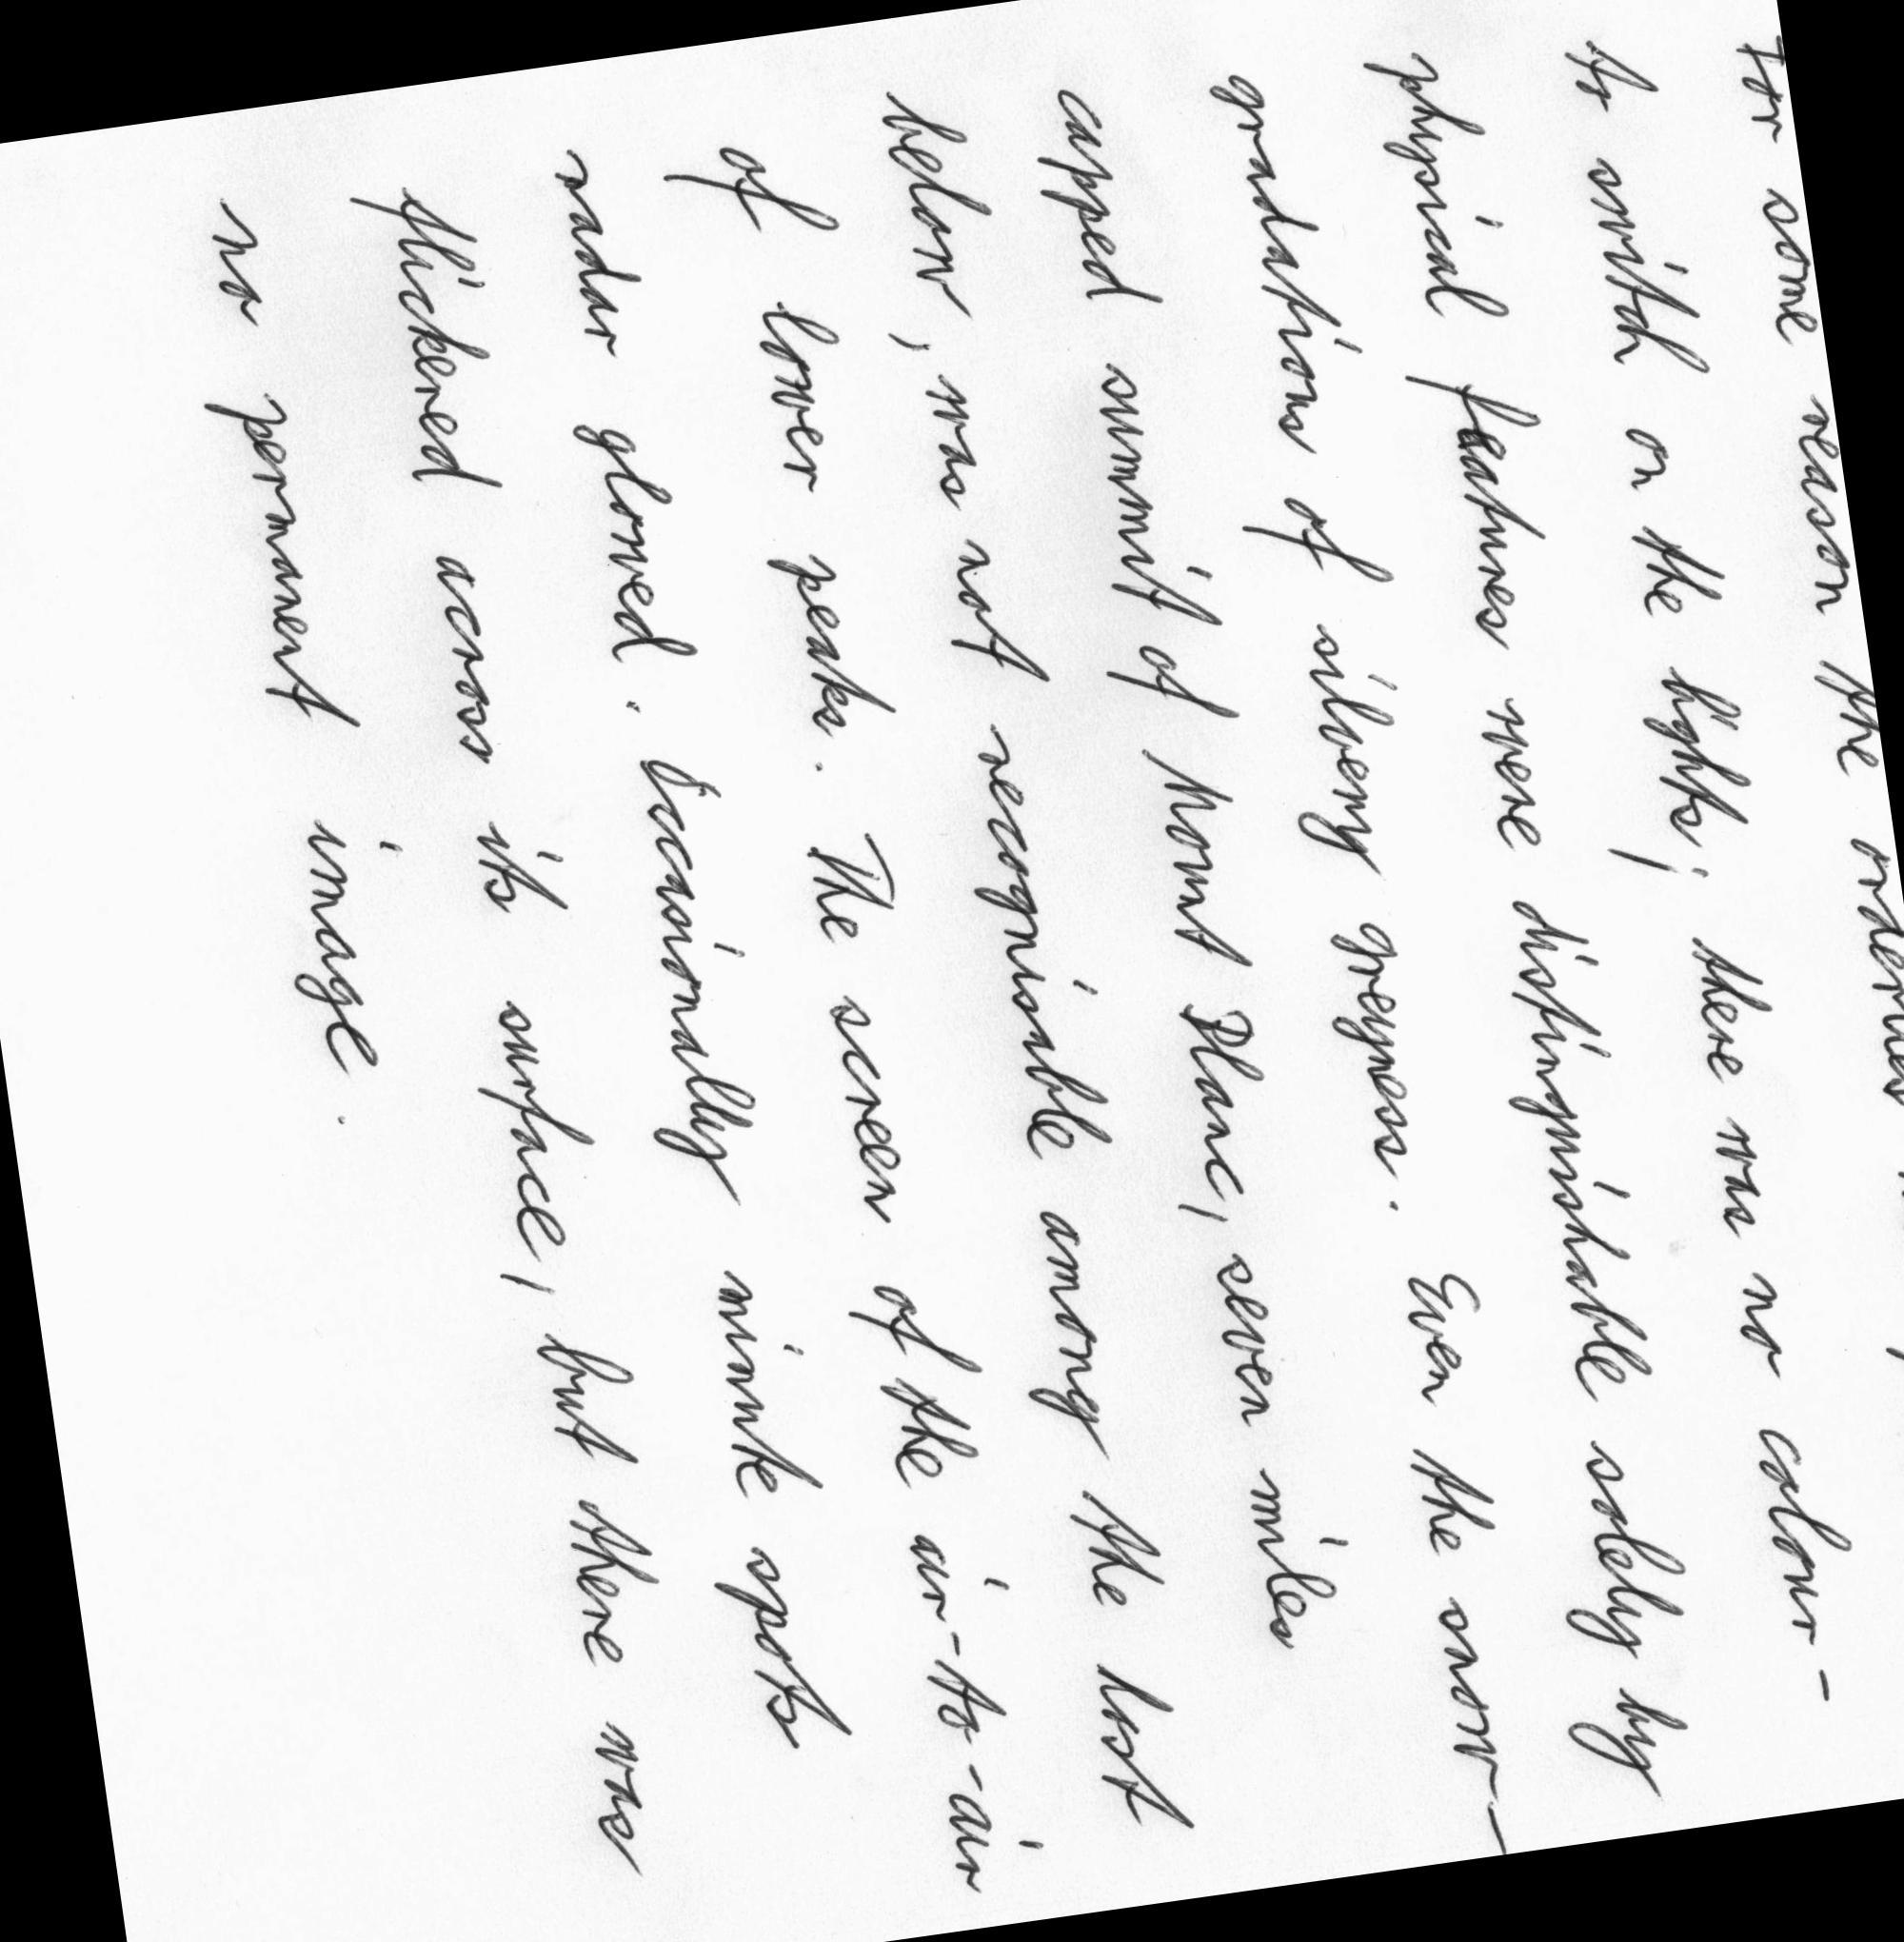 For some reason the orderlies
to switch on the lights; there was no colour-
physical features were distinguishable solely by
gradations of silvery greyness. Even the snow-
capped summit of Mont Blanc, seven miles
below, was not recognisable among the host
of lower peaks. The screen of the air-to-air
radar glowed. Occasionally minute spots
flickered across its surface, but there was
no permanent image.